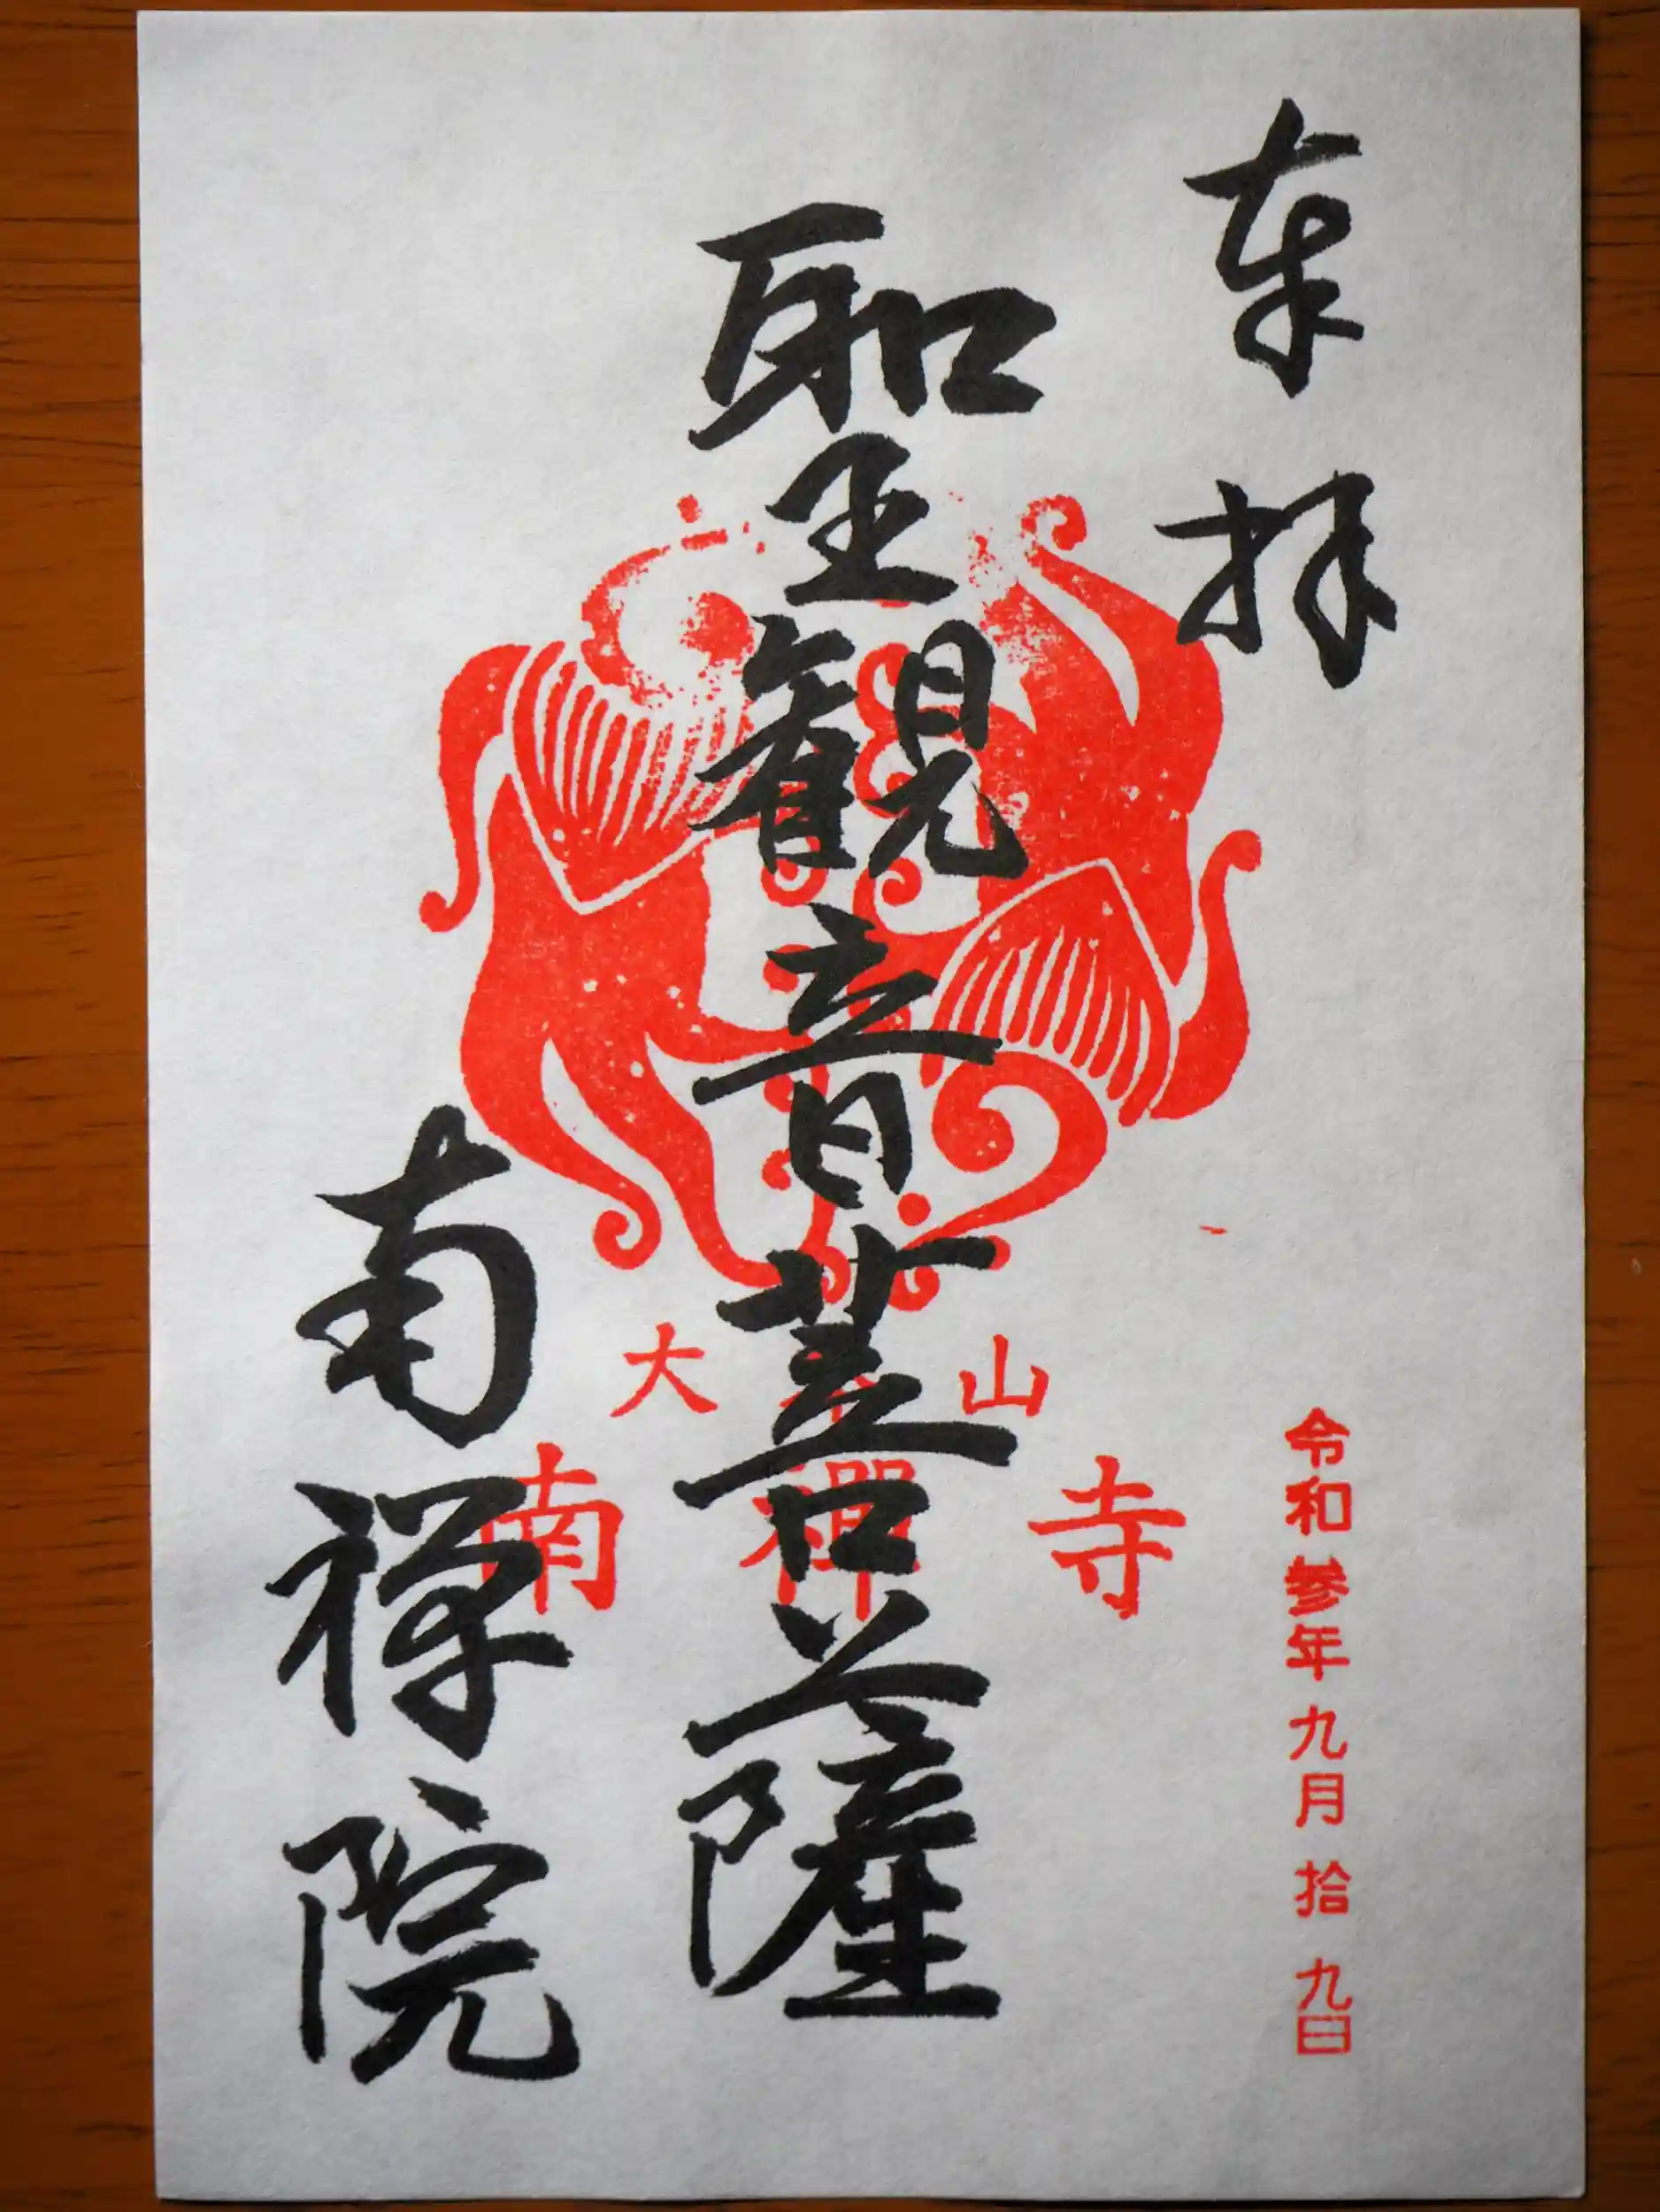 奉拝
令和参年九月拾九日
聖観音菩薩
大山
南禅寺
南禅院